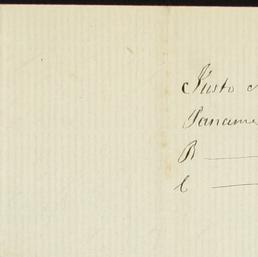 Justo
Paname
R —
C —